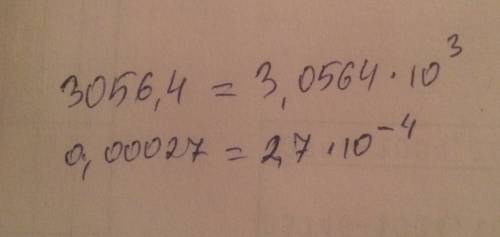 3056,4 = 3,0564 · 10³
0,00027 = 2,7 · 10⁻⁴